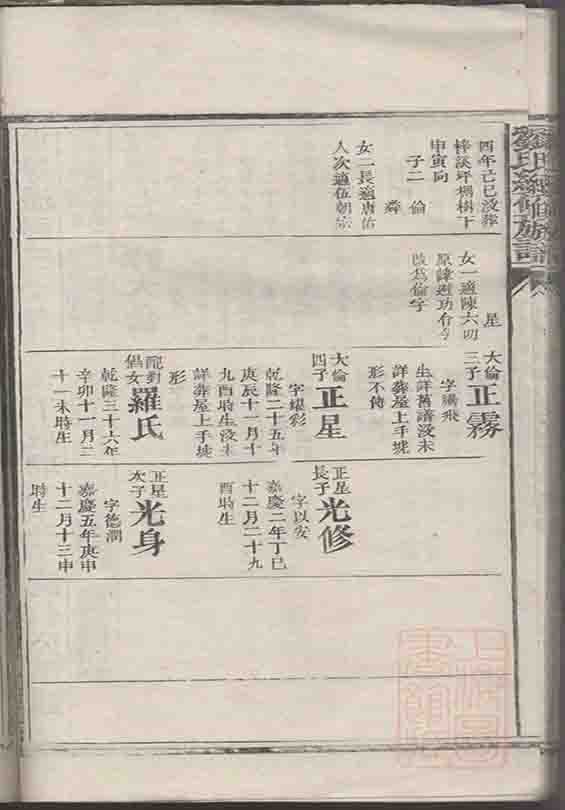 酉年己巳沒葬
申寅向
子二 倫
舜
女二長適唐佑
人次適伍朝宗
星
女一適陳六四
改爲倫字
大倫三子
正霧
字騰飛
生詳舊譜沒未
詳葬屋上手塘
形不傳
大倫四子
正星
字燿彩
乾隆二十五年
庚辰十一月十
九酉時生沒未
詳葬屋上手塘
形
女
羅氏
乾隆三十六年
辛卯十一月三
十一未時生
正星長子
光修
字以安
嘉慶二年丁巳
十二月二十九
酉時生
正星次子
光身
字德潤
嘉慶五年庚申
十二月十三申
時生